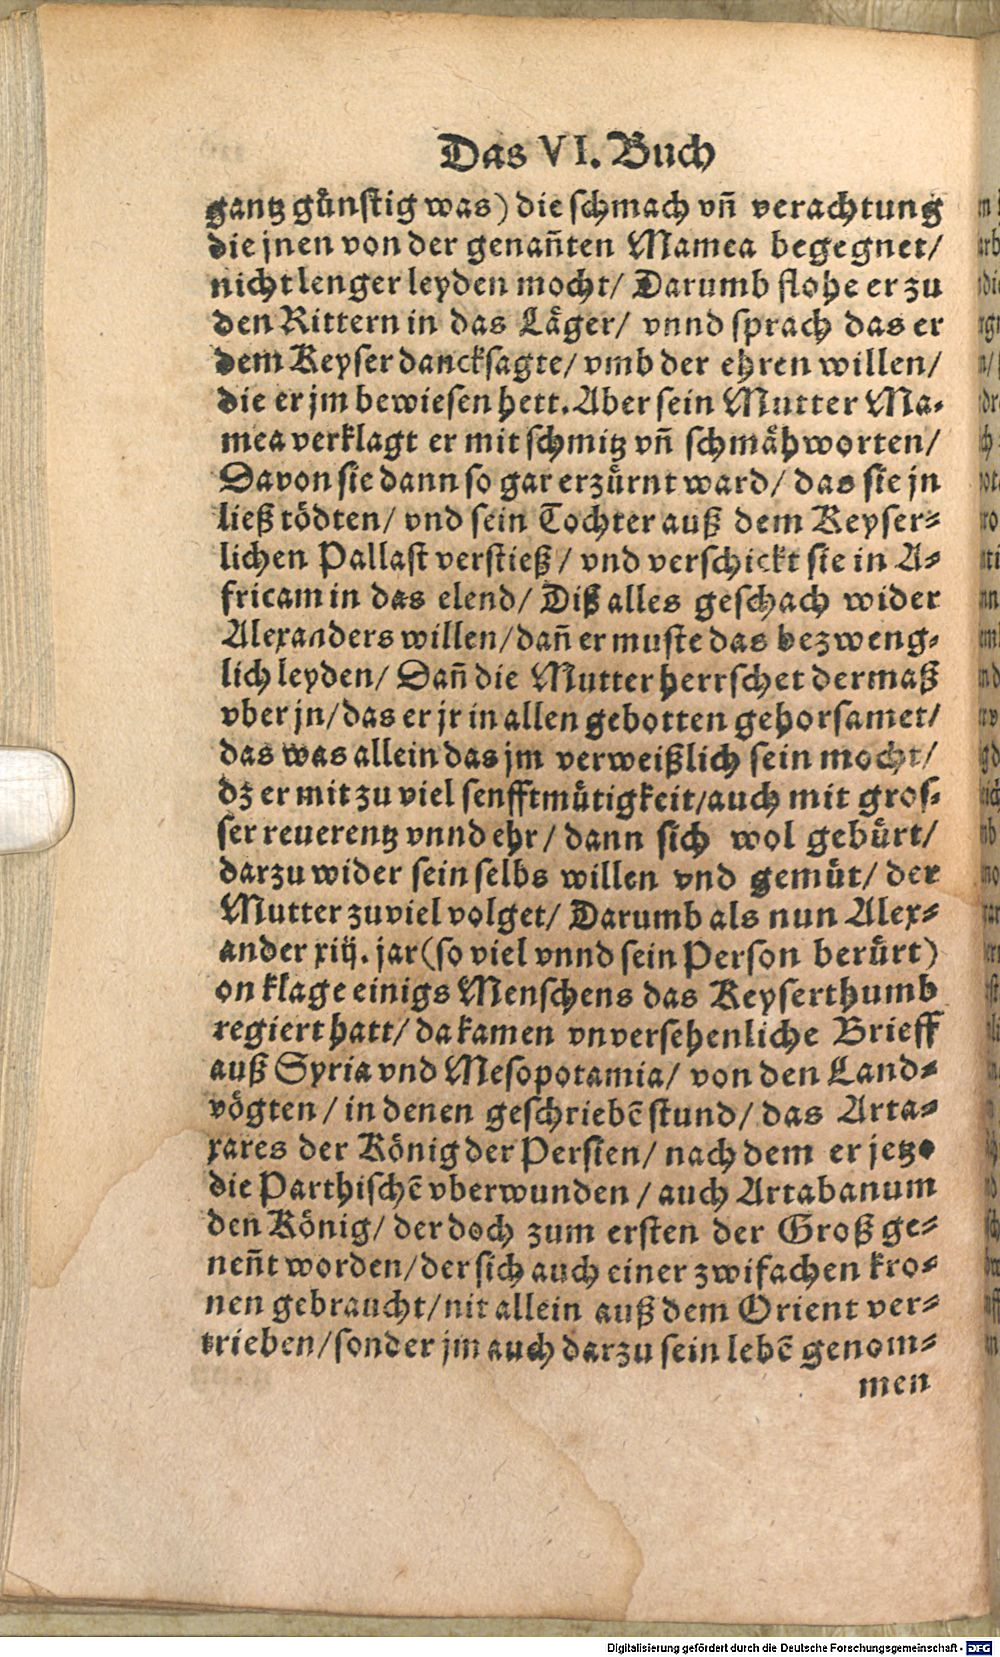 Das VI. Buch
gantz günstig was) die schmach vñ verachtung
die jnen von der genañten Mamea begegnet/
nicht lenger leyden mocht/ Darumb flohe er zu
den Rittern in das Läger/ vnnd sprach das er
dem Keyser dancksagte/ vmb der ehren willen/
die er jm bewiesen hett. Aber sein Mutter Ma-
mea verklagt er mit schmitz vñ schmähworten/
Davon sie dann so gar erzürnt ward/ das sie jn
ließ tödten/ vnd sein Tochter auß dem Keyser-
lichen Pallast verstieß/ vnd verschickt sie in A-
fricam in das elend/ Diß alles geschach wider
Alexanders willen/ dañ er muste das bezweng-
lich leyden/ Dañ die Mutter herrschet dermaß
vber jn/ das er jr in allen gebotten gehorsamet/
das was allein das jm verweißlich sein mocht/
dz er mit zu viel senfftmütigkeit/ auch mit gros-
ser reuerentz vnnd ehr/ dann sich wol gebürt/
darzu wider sein selbs willen vnd gemüt/ der
Mutter zuviel volget/ Darumb als nun Alex-
ander xiij. jar (so viel vnnd sein Person berürt)
on klage einigs Menschens das Keyserthumb
regiert hatt/ da kamen vnversehenliche Brieff
auß Syria vnd Mesopotamia/ von den Land-
vögten/ in denen geschriebē stund/ das Arta-
xares der König der Persien/ nach dem er jetzo
die Parthischē vberwunden/ auch Artabanum
den König/ der doch zum ersten der Groß ge-
neñt worden/ der sich auch einer zwifachen kro-
nen gebraucht/ nit allein auß dem Orient ver-
trieben/ sonder jm auch darzu sein lebē genom-
men
Digitalisierung gefördert durch die Deutsche Forschungsgemeinschaft - DFG